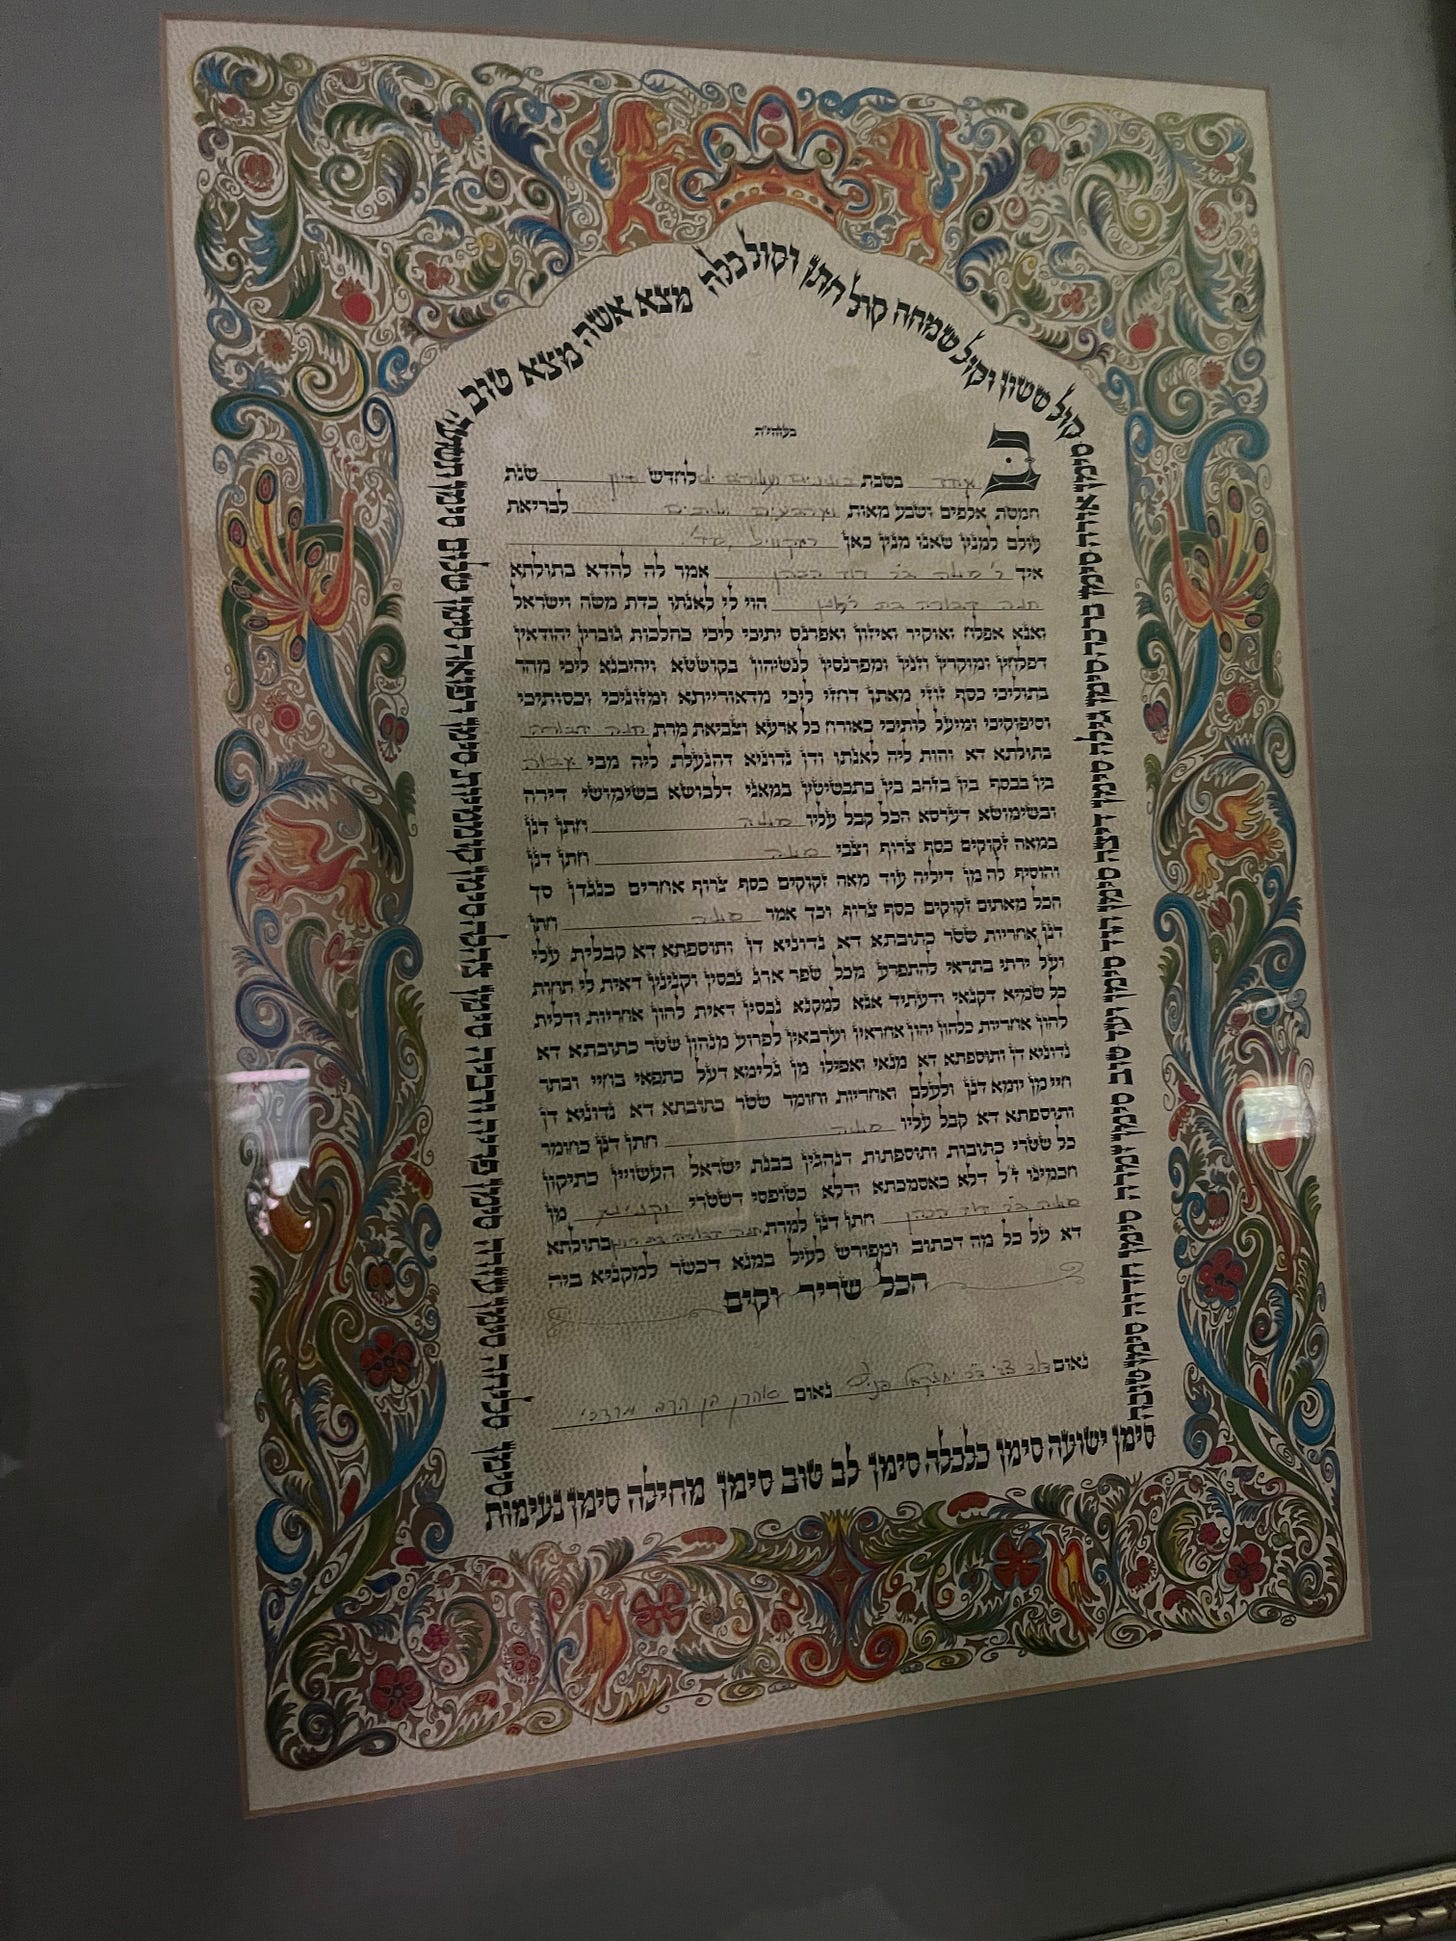 קול ששון וקול שמחה קול חתן וקול כלה מצא אשה מצא טוב
בעזהי״ת
ב בשבת לחדש שנת
חמשת אלפים ושבע מאות לבריאת
עולם למנין שאנו מנין כאן
איך דוד הכהן אמר לה להדא בתולתא
חנה דבורה בת הוי לי לאנתו כדת משה וישראל
ואנא אפלח ואוקיר ואיזון ואפרנס יתיכי ליכי כהלכות גוברין יהודאין
דפלחין ומוקרין וזנין ומפרנסין לנשיהון בקושטא ויהיבנא ליכי מהר
בתוליכי כסף זוזי מאתן דחזי ליכי מדאורייתא ומזוניכי וכסותיכי
וסיפוקיכי ומיעל לותיכי כאורח כל ארעא וצביאת מרת חנה דבורה
בתולתא דא והות ליה לאנתו ודן נדוניא דהנעלת ליה מבי אבוה
בין בכסף בין בזהב בין בתכשיטין במאני דלבושא בשימושי דירה
ובשימושא דערסא הכל קבל עליו חתן דנן
במאה זקוקים כסף צרוף וצבי חתן דנן
והוסיף לה מן דיליה עוד מאה זקוקים כסף צרוף אחרים כנגדן סך
הכל מאתים זקוקים כסף צרוף וכך אמר חתן
דנן אחריות שטר כתובתא דא נדוניא דן ותוספתא דא קבלית עלי
ועל ירתי בתראי להתפרע מכל שפר ארג נכסין וקנינין דאית לי תחות
כל שמיא דקנאי ודעתיד אנא למקנא נכסין דאית להון אחריות ודלית
להון אחריות כלהון יהון אחראין וערבאין לפרוע מנהון שטר כתובתא דא
נדוניא דן ותוספתא דא מנאי ואפילו מן גלימא דעל כתפאי בחיי ובתר
חיי מן יומא דנן ולעלם ואחריות וחומר שטר כתובתא דא נדוניא דן
ותוספתא דא קבל עליו חתן דנן כחומר
כל שטרי כתובות ותוספתות דנהגין בבנת ישראל העשויין כתיקון
חכמינו ז״ל דלא כאסמכתא ודלא כטופסי דשטרי וקנינא מן
דוד הכהן חתן דנן למרת חנה דבורה בת בתולתא
דא על כל מה דכתוב ומפורש לעיל במנא דכשר למקניא ביה
הכל שריר וקים
נאום דוב צבי ב״ר נאום אהרן בן הרב מרדכי
סימן אורה סימן ברכה סימן גילה סימן דיצה סימן הוד סימן ועד טוב סימן זמרה סימן חדוה סימן טובה
סימן ישועה סימן כלכלה סימן לב טוב סימן מחילה סימן נעימות
סימן סליחה סימן עזרה סימן פדיה סימן צהלה סימן קוממיות סימן רפואה סימן שלום סימן תשועה